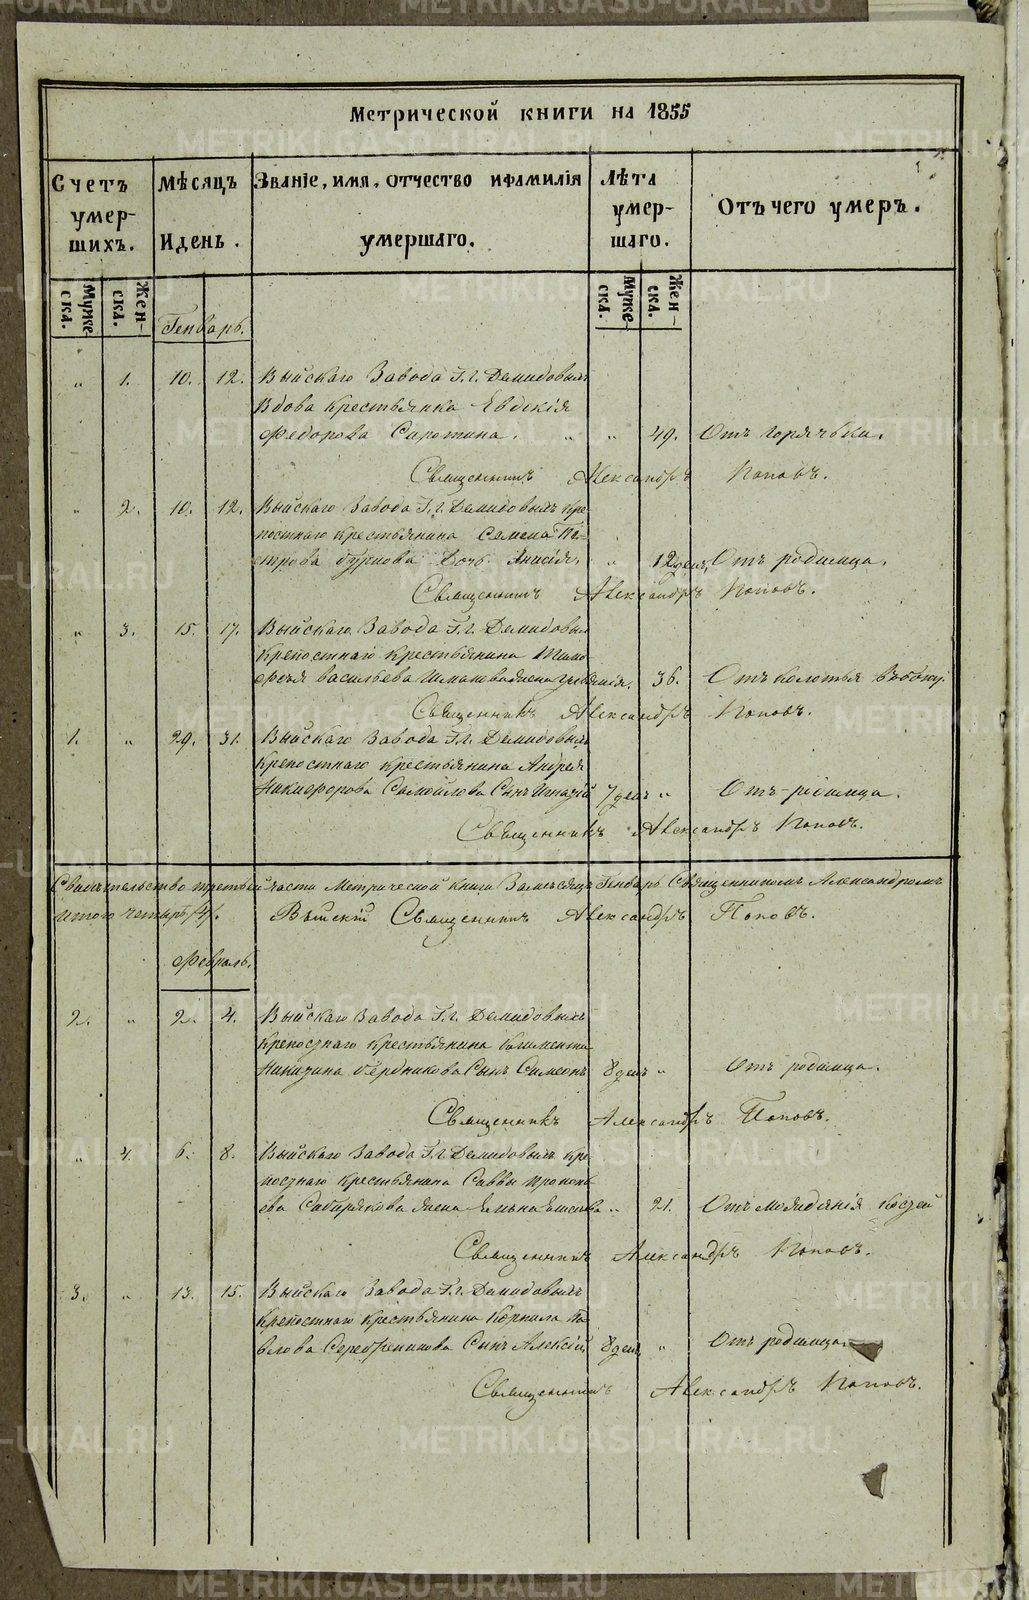 Метрической книги на 1855
Счетъ умер-шихъ.
Мѣсяцъ и день.
Званіе, имя, отчество и фамилія умершаго.
Лѣта умер-шаго.
Отъ чего умеръ.
Мужеска.
Женска.
Мужеска.
Женска.
Генварь.
„ 1. 10. 12. Выйскаго Завода Г.г. Демидовыхъ
Вдова крестьянка Евдокія
Федорова Сиротина. „ „ 49. Отъ горячьки.
Священникъ Александръ Поповъ.
„ 2. 10. 12. Выйскаго Завода Г.г. Демидовыхъ кре
постнаго крестьянина Семена Пе-
трова Дочь Анисія, „ 12 ден, Отъ родимца.
Священникъ Александръ Поповъ.
„ 3. 15. 17. Выйскаго Завода Г.г. Демидовыхъ
крепостнаго крестьянина Тимо
фея Васильева жена 36. Отъ колотья въ боку.
Священникъ Александръ Поповъ.
1. „ 29. 31. Выйскаго Завода Г.г. Демидовыхъ
крепостнаго крестьянина Андрея
Никифорова Самойлова Сынъ Игнатій 7 ден „ Отъ родимца.
Священникъ Александръ Поповъ.
третьей части Метрической книги За месяцъ Генварь Священникомъ Александромъ
итого четыре /4/. Выйскій Священникъ Александръ Поповъ.
Февраль.
2. „ 2. 4. Выйскаго Завода Г.г. Демидовыхъ
крепостнаго крестьянина Климента
Никитина Бердникова Сынъ Симеонъ 8 ден „ Отъ родимца.
Священникъ Александръ Поповъ.
„ 4. 6. 8. Выйскаго Завода Г.г. Демидовыхъ кре
постнаго крестьянина Саввы Прокопь
ева Сибирякова жена „ 21. Отъ костей
Священникъ Александръ Поповъ.
3. „ 13. 15. Выйскаго Завода Г.г. Демидовыхъ
крепостнаго крестьянина Корнила Па
влова Серебреникова Сынъ Алексій 8 ден „ Отъ родимца.
Священникъ Александръ Поповъ.
METRIKI.GASO-URAL.RU